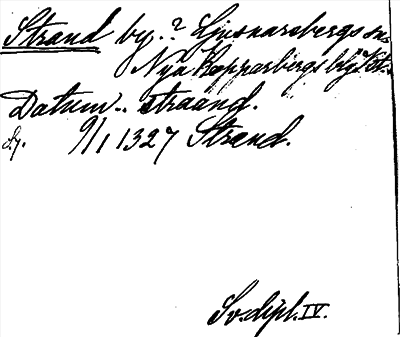 Strand by.? Ljusnarsbergs sn
Nya Kopparbergs bgsl.
Datum.. straand.
9/1 1327 Strand.
Sv. dipl. IV.